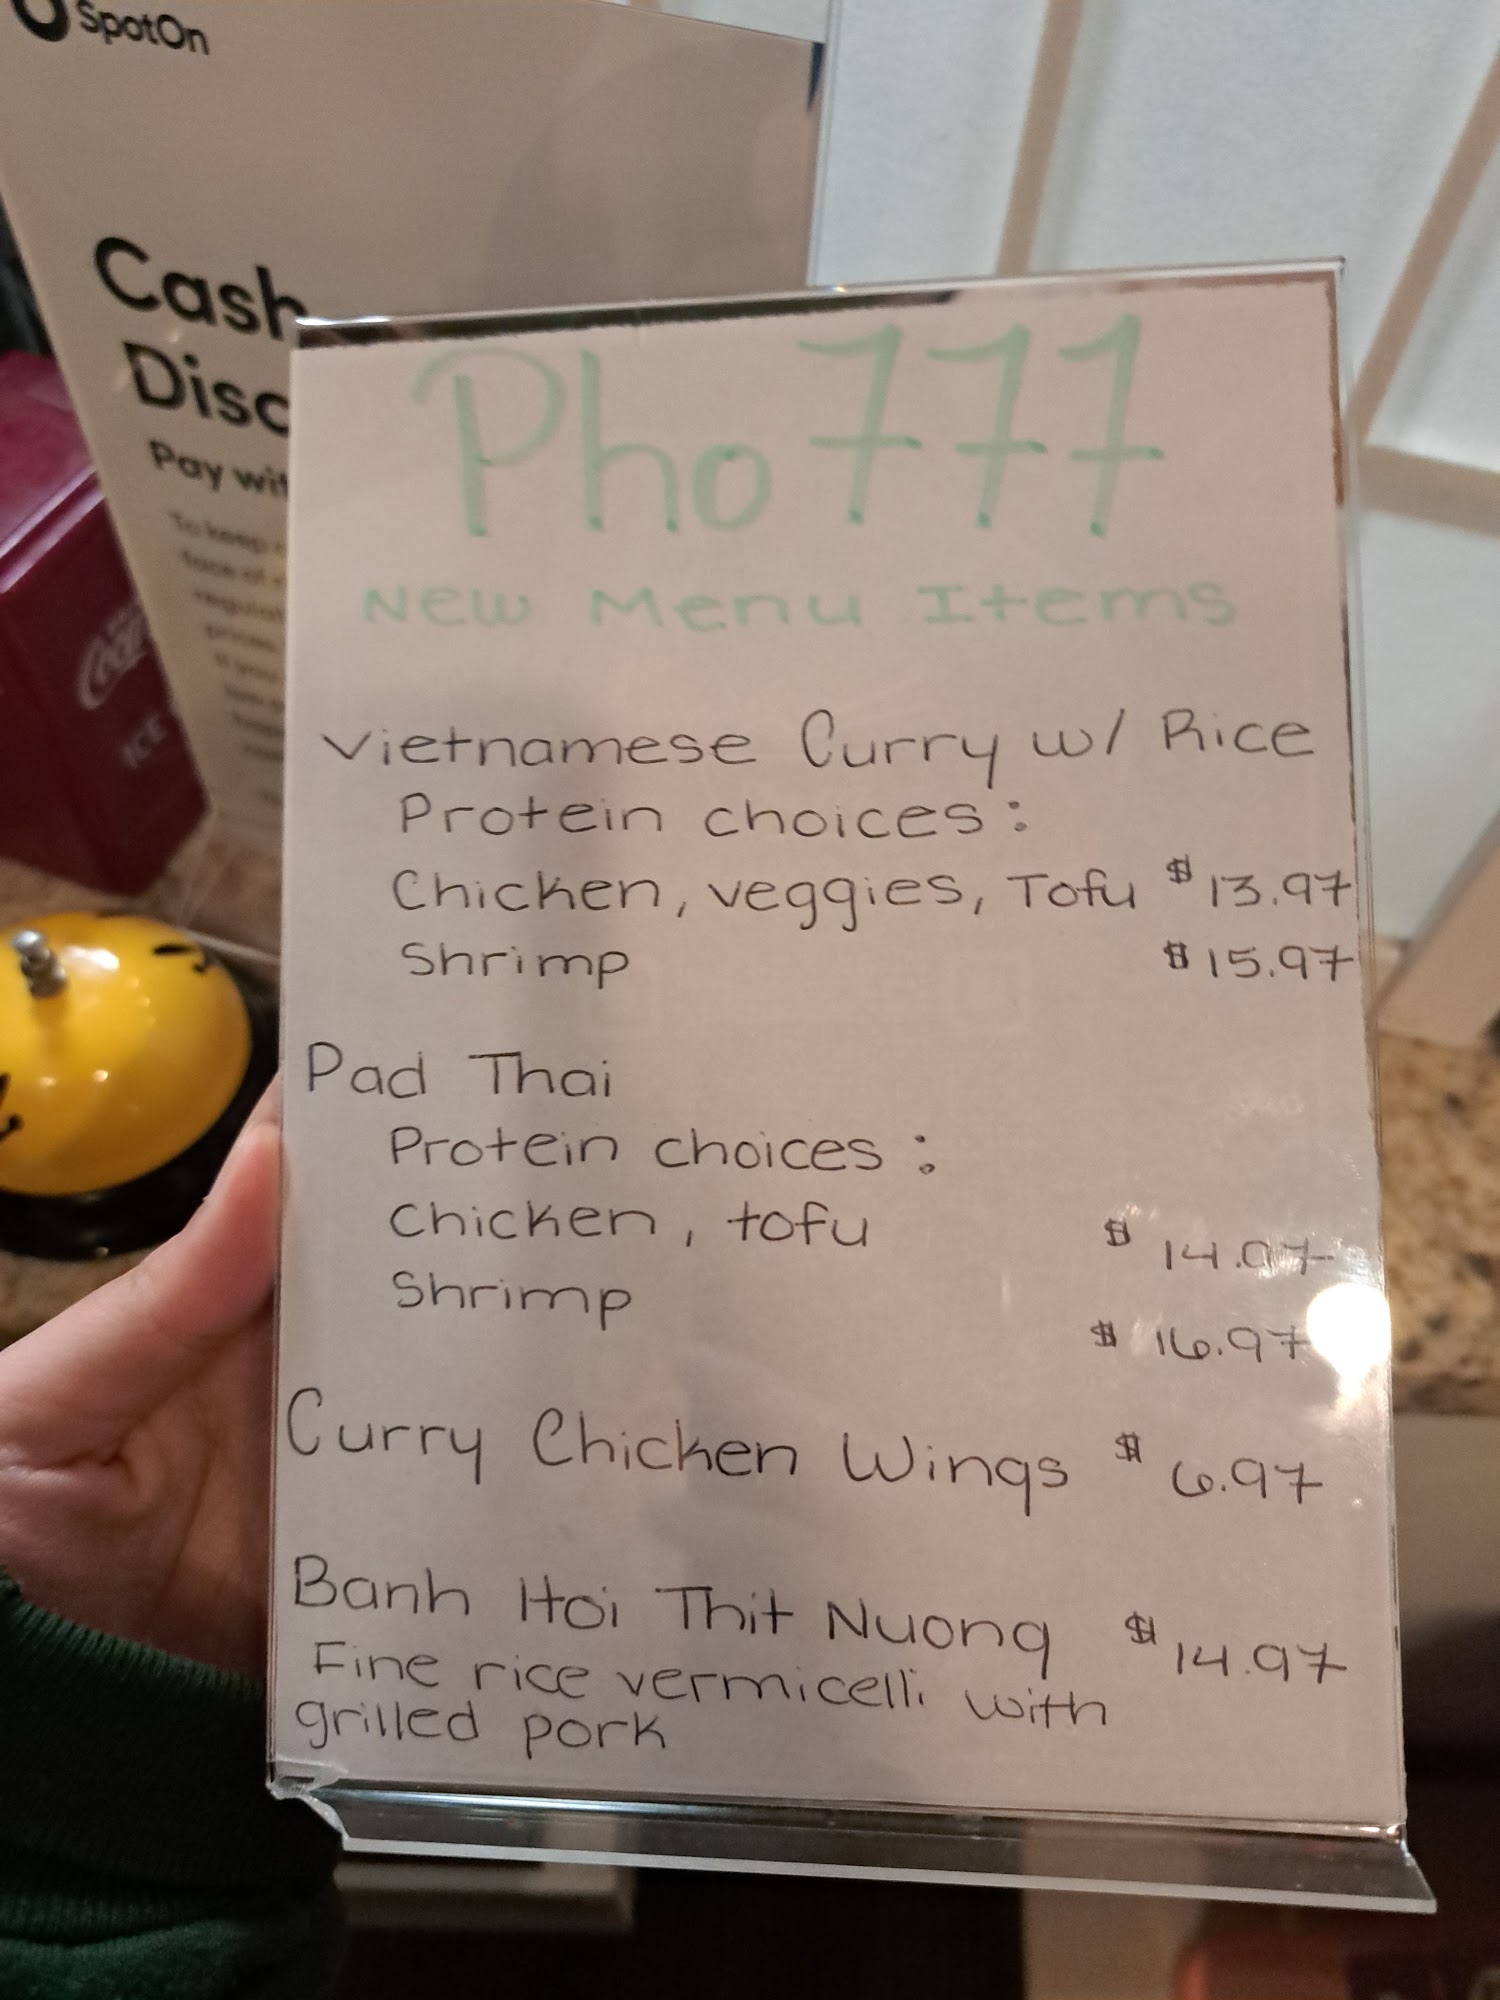 SpotOn
Cash
Disc
Pay wit
To keep
face of
regulat
prices.
If you
ICE
Pho 777
New Menu Items
Vietnamese Curry w/ Rice
Protein choices:
Chicken, veggies, Tofu $13.97
Shrimp $15.97
Pad Thai
Protein choices:
Chicken, tofu $14.97
Shrimp $16.97
Curry Chicken Wings $6.97
Banh Hoi Thit Nuong $14.97
Fine rice vermicelli with
grilled pork